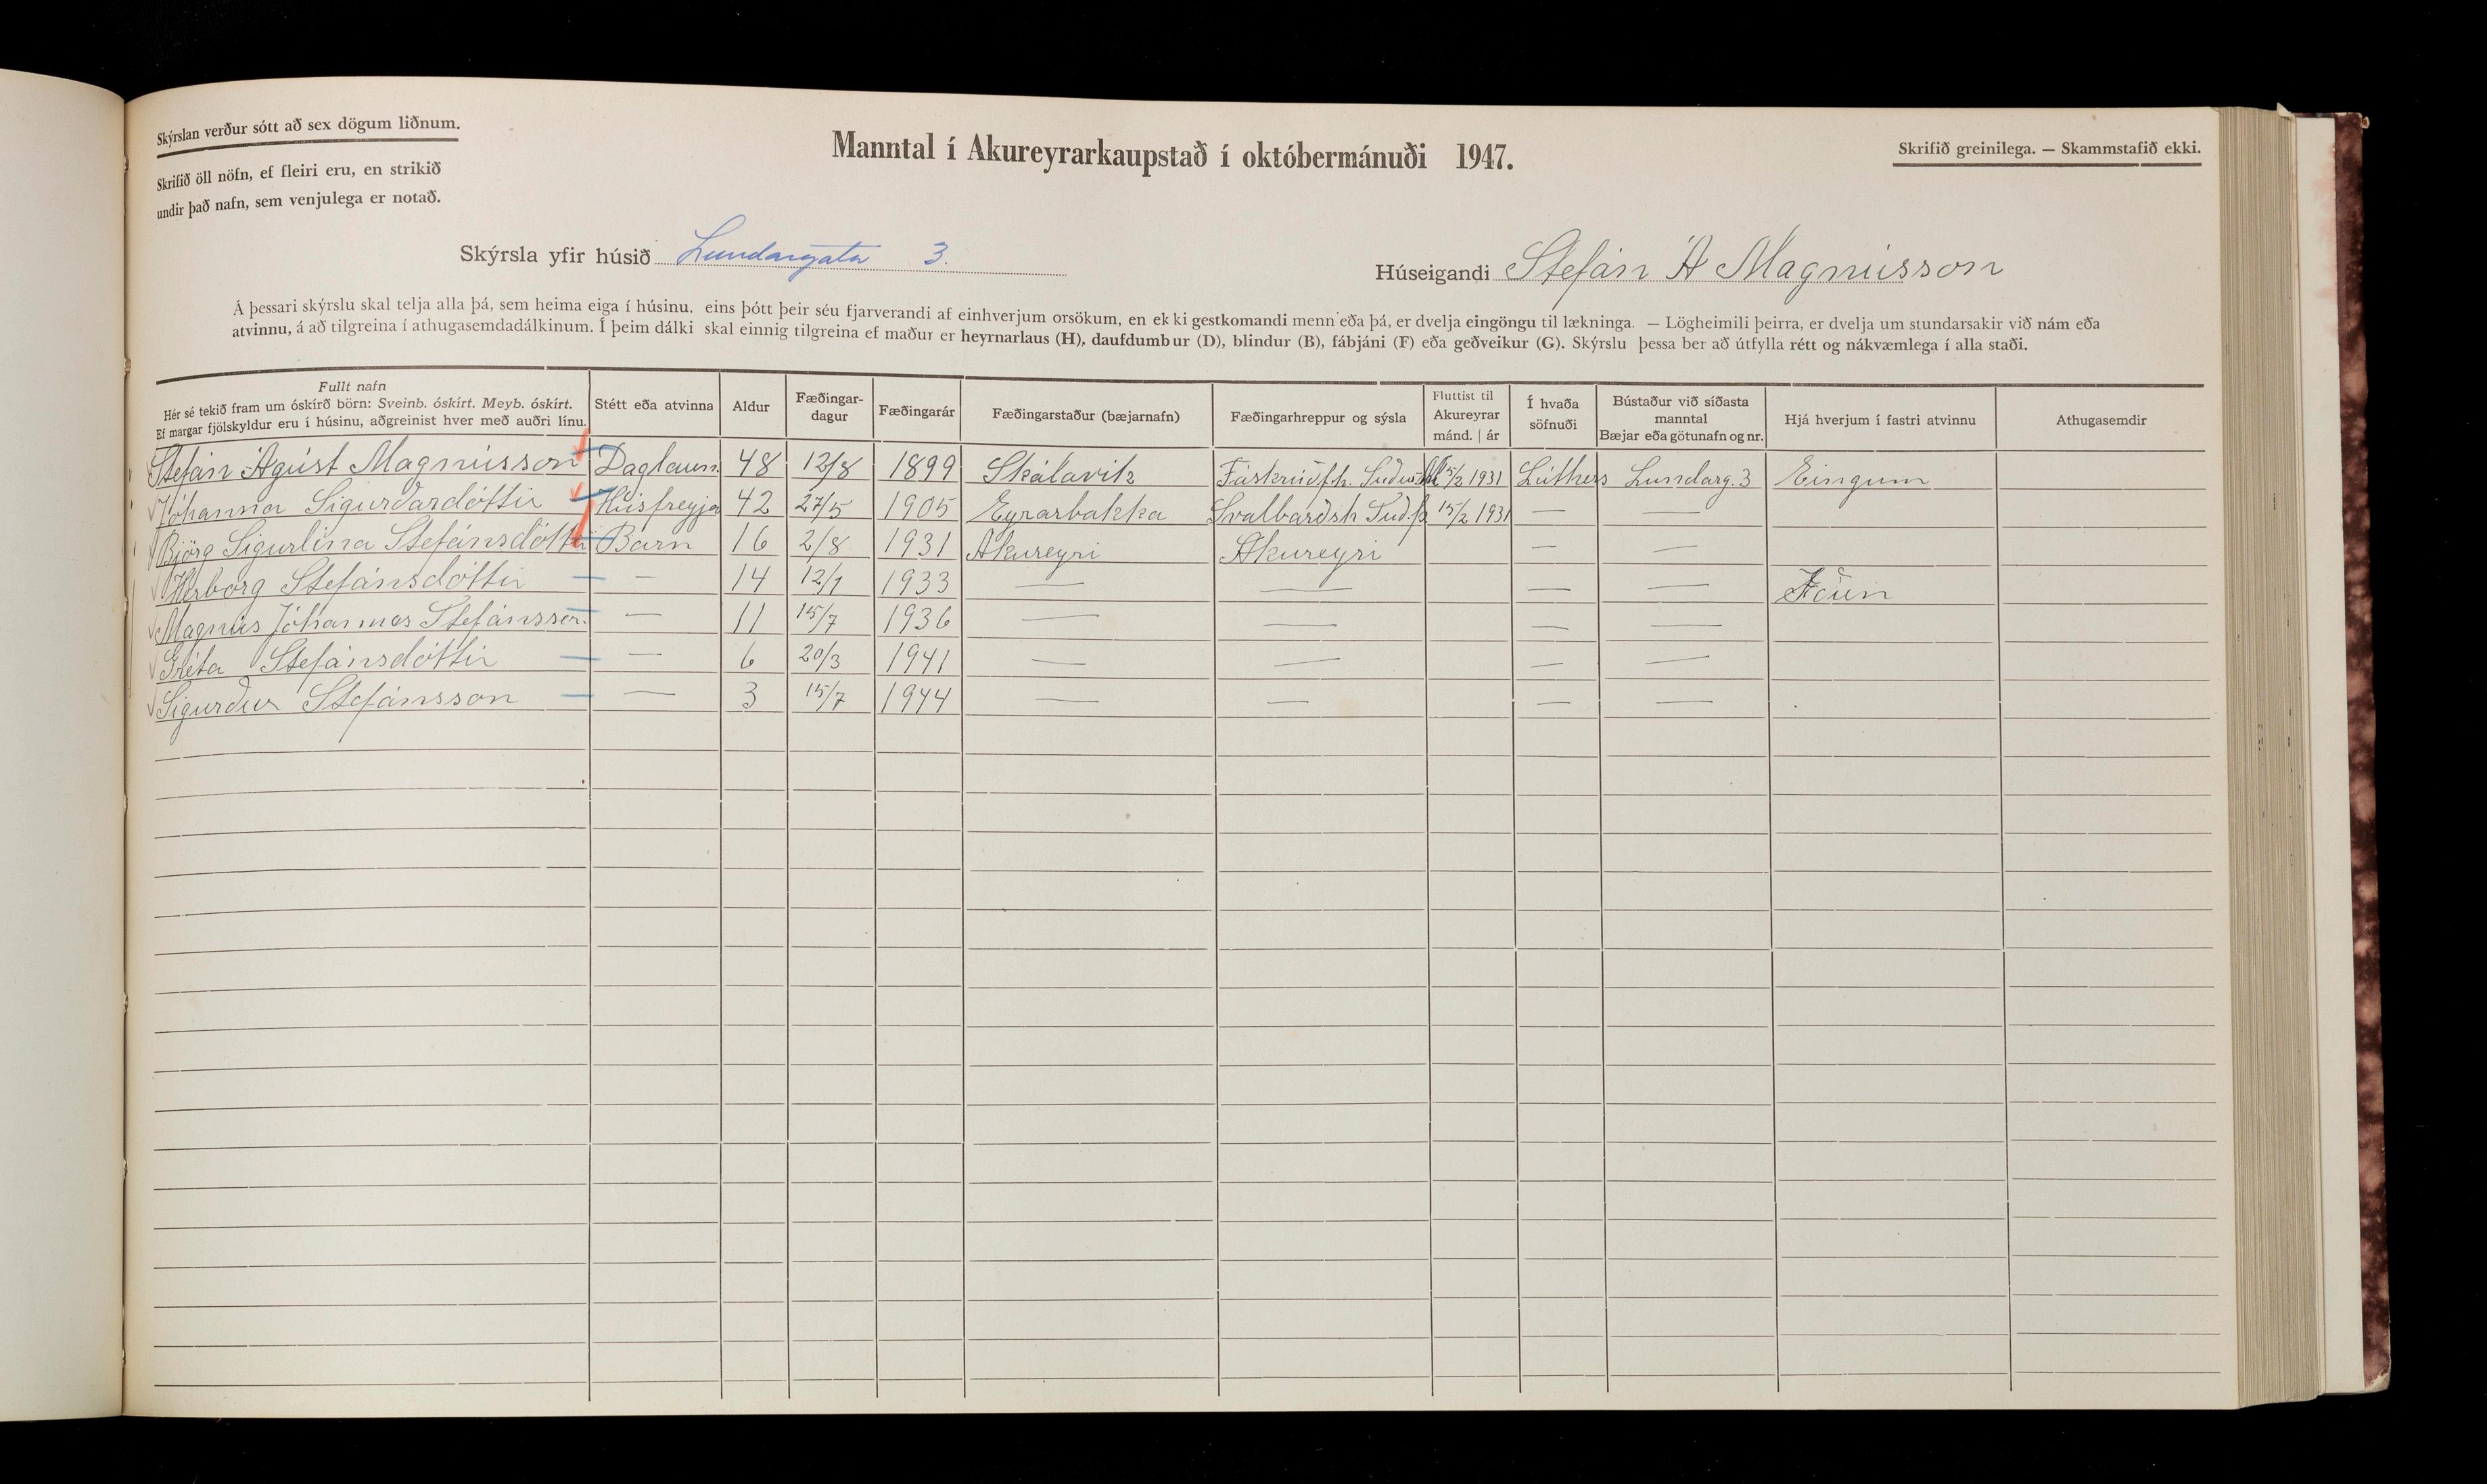 Skýrslan verður sótt að sex dögum liðnum.
Skrifið öll nöfn, ef fleiri eru, en strikið
undir það nafn, sem venjulega er notað.
Manntal í Akureyrarkaupstað í októbermánuði 1947.
Skrifið greinilega. — Skammstafið ekki.
Skýrsla yfir húsið Lundargata 3.
Húseigandi Stefán Á Magnússon
Á þessari skýrslu skal telja alla þá, sem heima eiga í húsinu, eins þótt þeir séu fjarverandi af einhverjum orsökum, en ekki gestkomandi menn eða þá, er dvelja eingöngu til lækninga. — Lögheimili þeirra, er dvelja um stundarsakir við nám eða
atvinnu, á að tilgreina í athugasemdadálkinum. Í þeim dálki skal einnig tilgreina ef maður er heyrnarlaus (H), daufdumbur (D), blindur (B), fábjáni (F) eða geðveikur (G). Skýrslu þessa ber að útfylla rétt og nákvæmlega í alla staði.
Fullt nafn
Hér sé tekið fram um óskírð börn: Sveinb. óskírt. Meyb. óskírt.
Ef margar fjölskyldur eru í húsinu, aðgreinist hver með auðri línu.
Stétt eða atvinna
Aldur
Fæðingar-
dagur
Fæðingarár
Fæðingarstaður (bæjarnafn)
Fæðingarhreppur og sýsla
Fluttist til
Akureyrar
mánd. | ár
Í hvaða
söfnuði
Bústaður við síðasta
manntal
Bæjar eða götunafn og nr.
Hjá hverjum í fastri atvinnu
Athugasemdir
Stefán Ágúst Magnússon Daglaun. 48 12/8 1899 Skálavik Fáskrúðfh. 15/2 1931 Lúthers Lundarg. 3 Eingum
Jóhanna Sigurðardóttir Húsfreyja 42 27/5 1905 Eyrarbakka Svalbarðsh 15/2 1931 — —
Björg Sigurlína Stefánsdóttir Barn 16 2/8 1931 Akureyri Akureyri — —
Herborg Stefánsdóttir — 14 12/1 1933 — — — — Iðun
Magnús Jóhannes Stefánsson. — 11 15/7 1936 — — — —
Gréta Stefánsdóttir — 6 20/3 1941 — — — —
Sigurður Stefánsson — 3 15/7 1944 — — — —